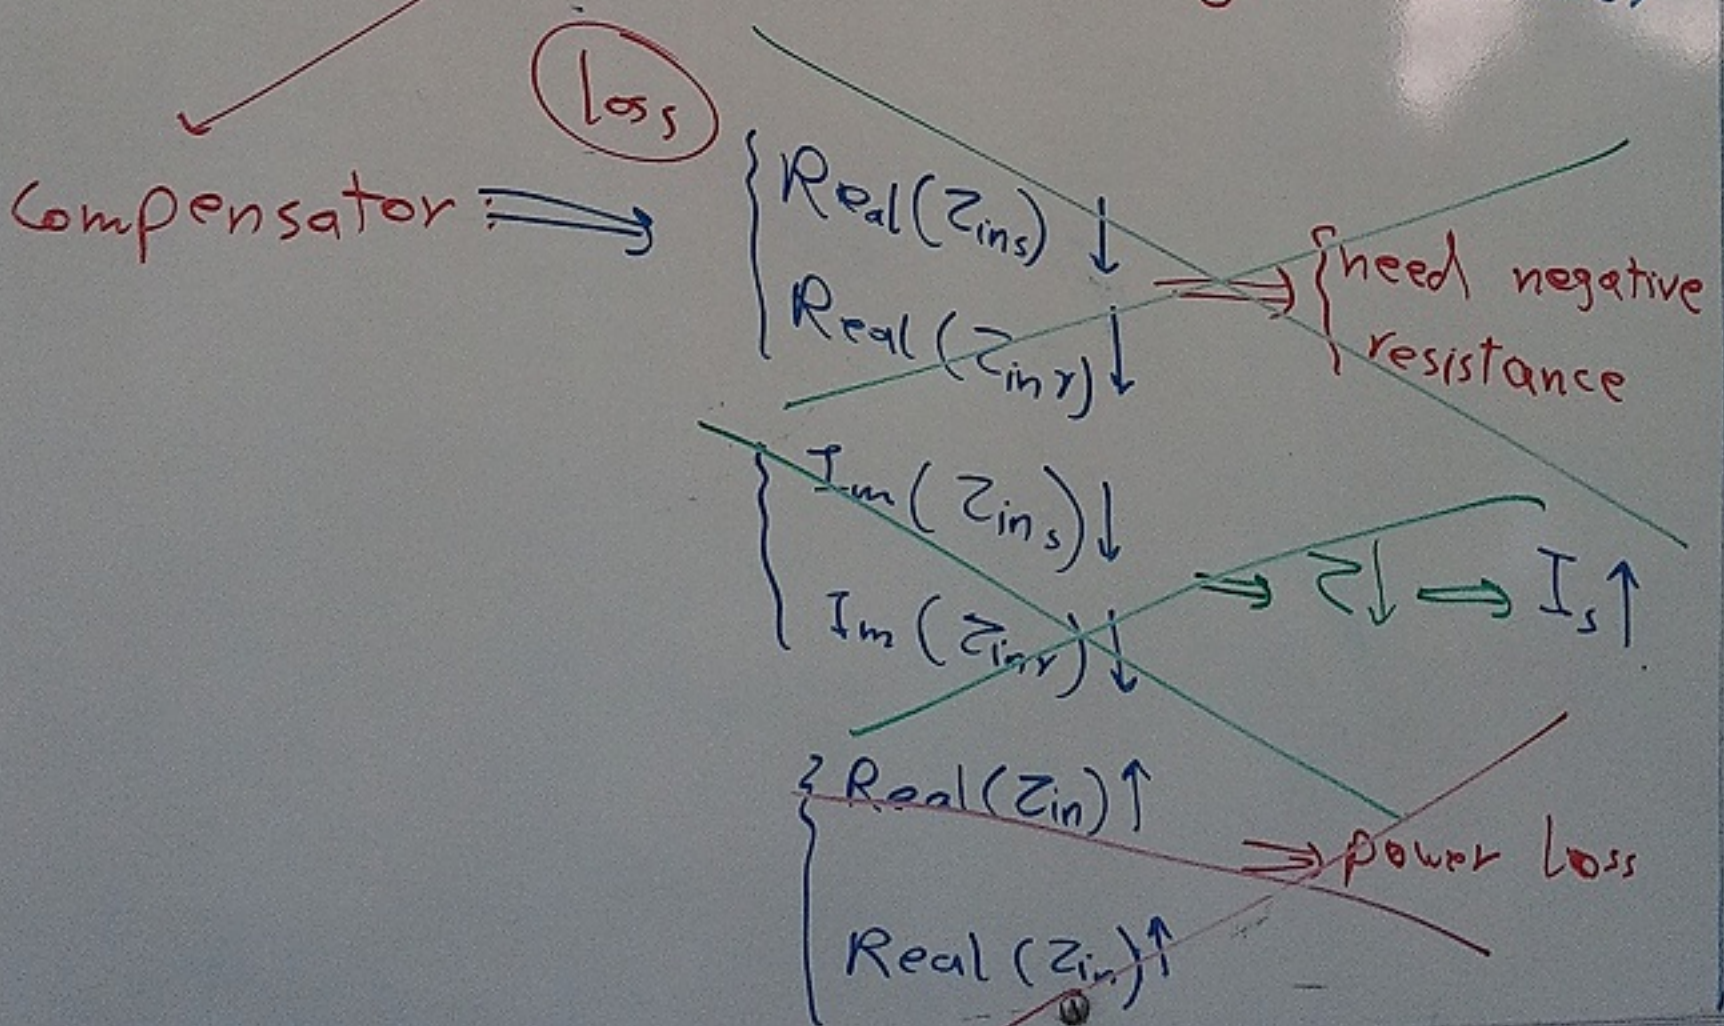 loss
Compensator ⇒ { Real(Zins) ↓
Real(Zinr) ↓
⇒ { need negative
resistance
{ Im(Zins) ↓
Im(Zinr) ↓
⇒ Z↓ ⇒ Is ↑
{ Real(Zin) ↑
⇒ power loss
Real(Zin) ↑